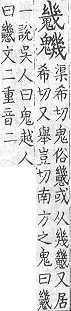 䰧渠希切鬼俗䰧或从幾䰧又居
希切又舉豈切南方之鬼曰䰧
一說吳人曰鬼越人
曰䰧文二重音二